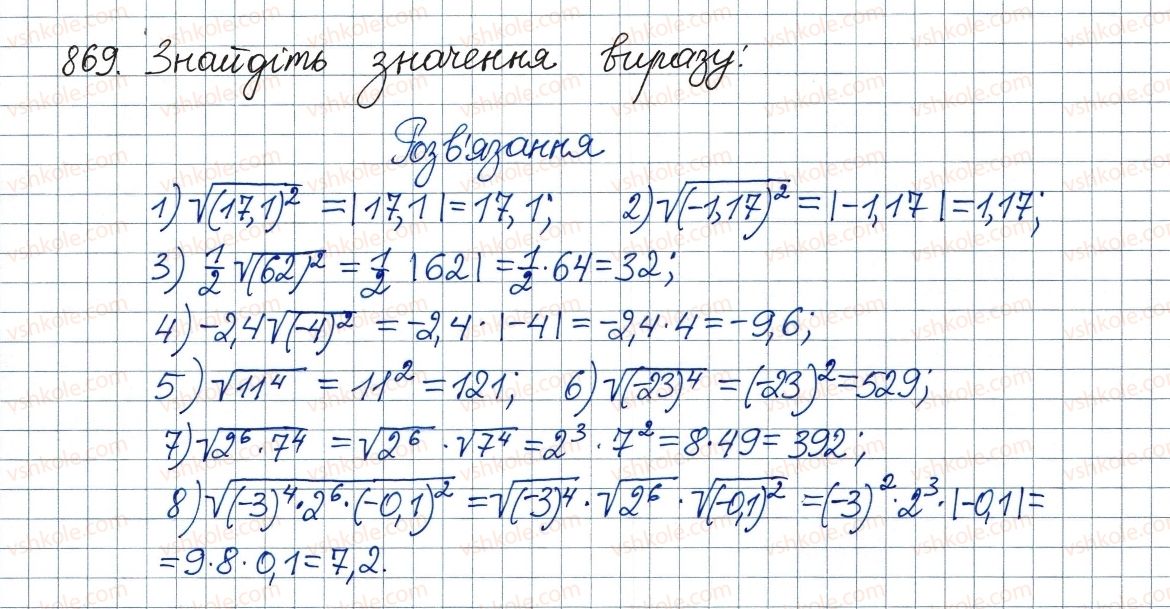 869. Знайдіть значення виразу:
Розв'язання
1) √(17,1)² = |17,1| = 17,1; 2) √(-1,17)² = |-1,17| = 1,17;
3) 1/2 √(62)² = 1/2 |62| = 1/2 · 64 = 32;
4) -2,4√(-4)² = -2,4 · |-4| = -2,4 · 4 = -9,6;
5) √11⁴ = 11² = 121; 6) √(-23)⁴ = (-23)² = 529;
7) √2⁶ · 7⁴ = √2⁶ · √7⁴ = 2³ · 7² = 8 · 49 = 392;
8) √(-3)⁴ · 2⁶ · (-0,1)² = √(-3)⁴ · √2⁶ · √(-0,1)² = (-3)² · 2³ · |-0,1| =
= 9 · 8 · 0,1 = 7,2.